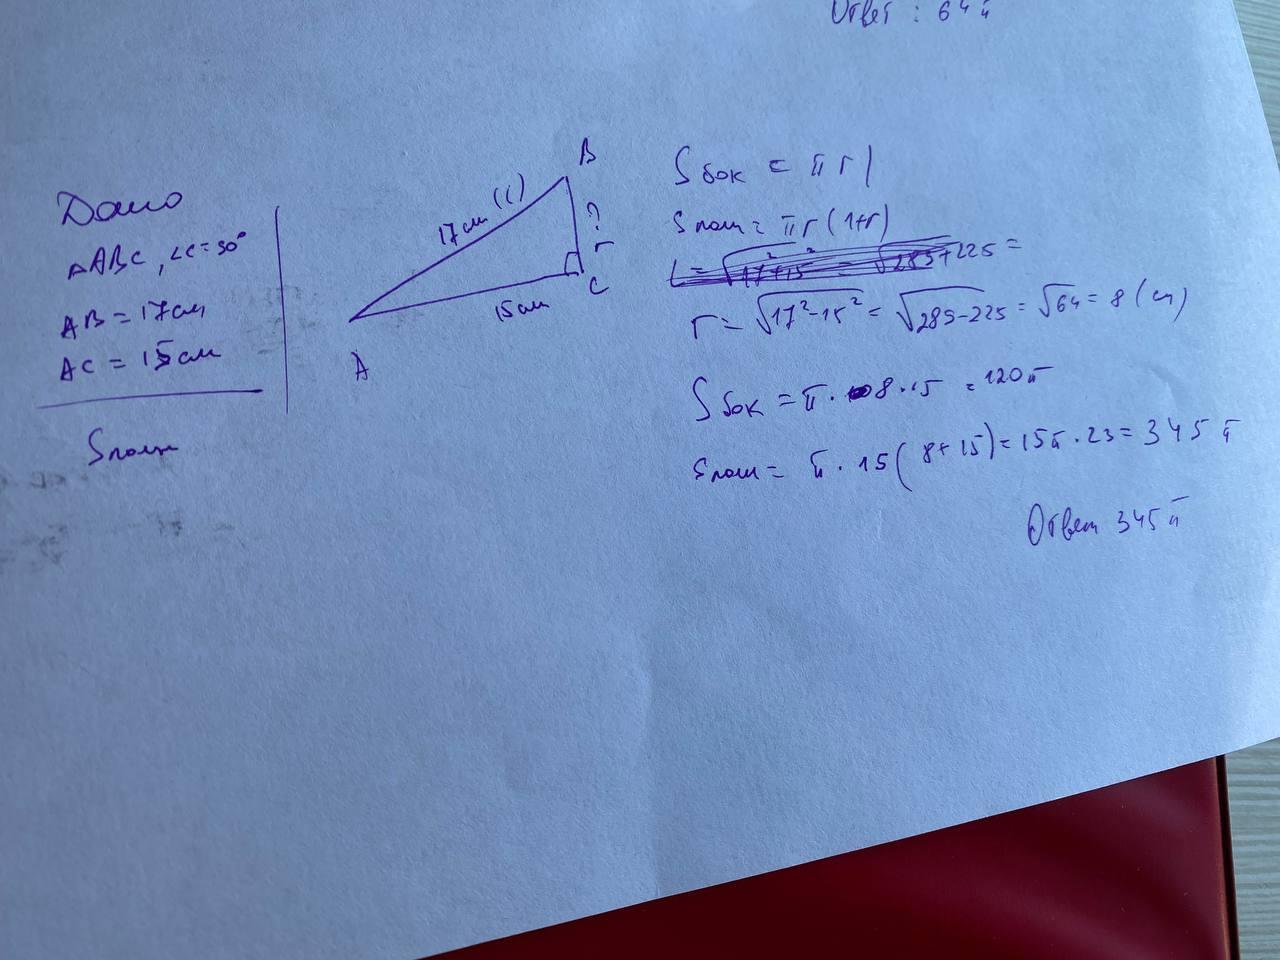 Ответ : 64π
Дано
△ABC, ∠C=90°
AB = 17см
AC = 15см
Sполн
B
17см (l)
?
r
C
15см
A
Sбок = πrl
Sполн = πr(l+r)
L = √17²+15² = √289+225 =
r = √17²-15² = √289-225 = √64 = 8 (см)
Sбок = π · 8 · 15 = 120π
Sполн = π · 15(8+15) = 15π · 23 = 345π
Ответ 345π